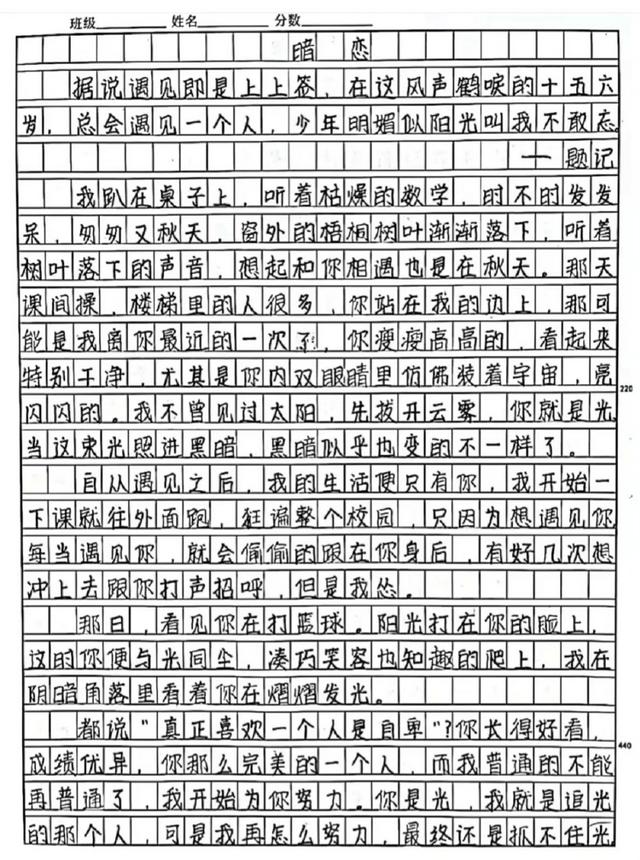 班级 姓名 分数
暗恋
据说遇见即是上上签，在这风声鹤唳的十五六
岁，总会遇见一个人，少年明媚似阳光叫我不敢忘。
——题记
我趴在桌子上，听着枯燥的数学，时不时发发
呆，匆匆又秋天，窗外的梧桐树叶渐渐落下，听着
树叶落下的声音，想起和你相遇也是在秋天。那天
课间操，楼梯里的人很多，你站在我的边上，那可
能是我离你最近的一次了，你瘦瘦高高的，看起来
特别干净，尤其是你内双眼睛里仿佛装着宇宙，亮
闪闪的。我不曾见过太阳，先拨开云雾，你就是光，
当这束光照进黑暗，黑暗似乎也变的不一样了。
自从遇见之后，我的生活便只有你，我开始一
下课就往外面跑，逛遍整个校园，只因为想遇见你，
每当遇见你，就会偷偷的跟在你身后，有好几次想
冲上去跟你打声招呼，但是我怂。
那日，看见你在打篮球。阳光打在你的脸上，
这时你便与光同尘，凑巧笑容也知趣的爬上，我在
阴暗角落里看着你在熠熠发光。
都说“真正喜欢一个人是自卑”？你长得好看，
成绩优异，你那么完美的一个人，而我普通的不能
再普通了，我开始为你努力。你是光，我就是追光
的那个人，可是我再怎么努力，最终还是抓不住光。
220
440